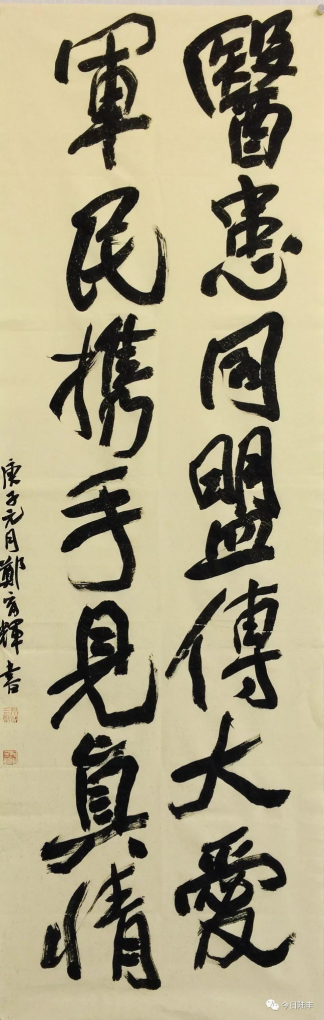 醫患同盟傳大愛
軍民攜手見真情
庚子元月鄭育輝書
今日陆丰